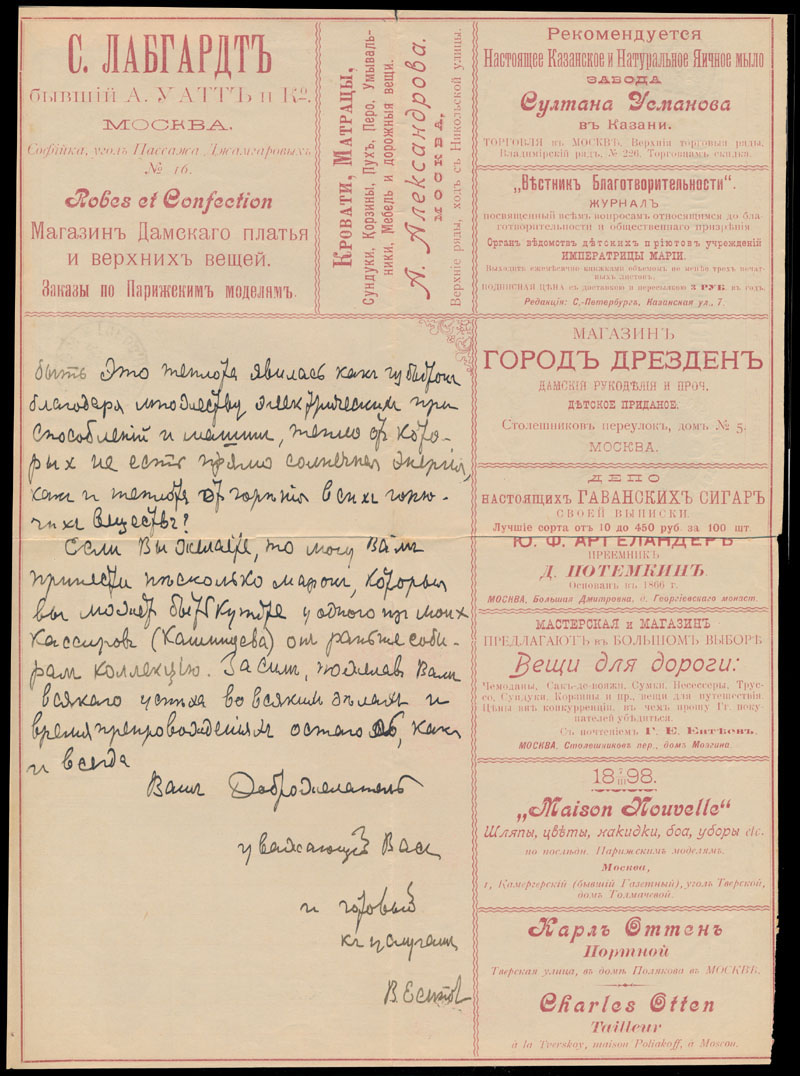 С. ЛАБГАРДТЪ
бывшій А. УАТТЪ и Кº.
МОСКВА.
Софійка, уголъ Пассажа Джамгаровыхъ
№ 16.
Robes et Confection
Магазинъ Дамскаго платья
и верхнихъ вещей.
Заказы по Парижскимъ моделямъ.
Кровати, Матрацы,
Сундуки, Корзины, Пухъ, Перо, Умываль-
ники, Мебель и дорожныя вещи.
А. Александрова.
МОСКВА,
Верхніе ряды, ходъ съ Никольской улицы.
Рекомендуется
Настоящее Казанское и Натуральное Яичное мыло
ЗАВОДА
Султана Усманова
въ Казани.
ТОРГОВЛЯ въ МОСКВѢ, Верхнія торговыя ряды,
Владимірскій рядъ, № 226. Торговцамъ скидка.
„Вѣстникъ Благотворительности“.
ЖУРНАЛЪ
посвященный всѣмъ вопросамъ относящимся до бла-
готворительности и общественнаго призрѣнія.
Органъ вѣдомствъ дѣтскихъ пріютовъ учрежденій
ИМПЕРАТРИЦЫ МАРІИ.
Выходитъ ежемѣсячно книжками объемомъ не менѣе трехъ печат-
ныхъ листовъ.
ПОДПИСНАЯ ЦѢНА съ доставкою и пересылкою 3 РУБ. въ годъ.
Редакція: С,-Петербургъ, Казанская ул., 7.
МАГАЗИНЪ
ГОРОДЪ ДРЕЗДЕНЪ
ДАМСКІЯ РУКОДѢЛІЯ И ПРОЧ.
ДѢТСКОЕ ПРИДАНОЕ.
Столешниковъ переулокъ, домъ № 5.
МОСКВА.
ДЕПО
НАСТОЯЩИХЪ ГАВАНСКИХЪ СИГАРЪ
СВОЕЙ ВЫПИСКИ.
Лучшіе сорта отъ 10 до 450 руб. за 100 шт.
Ю. Ф. АРГЕЛАНДЕРЪ
ПРЕЕМНИКЪ
Д. ПОТЕМКИНЪ.
Основанъ въ 1866 г.
МОСКВА, Большая Дмитровка, д. Георгіевскаго монаст.
МАСТЕРСКАЯ и МАГАЗИНЪ
ПРЕДЛАГАЮТЪ въ БОЛЬШОМЪ ВЫБОРѢ
Вещи для дороги:
Чемоданы, Сакъ-де-вояжи, Сумки, Несессеры, Трус-
со, Сундуки, Корзины и пр., вещи для путешествія.
Цѣны внѣ конкурренціи, въ чемъ прошу Гг. поку-
пателей убѣдиться.
Съ почтеніемъ Г. Е.
МОСКВА, Столешниковъ пер., домъ Мозгина.
18 I/III 98.
„Maison Nouvelle“
Шляпы, цвѣты, накидки, боа, уборы etc.
по послѣдн. Парижскимъ моделямъ.
Москва,
1, Камергерскій (бывшій Газетный), уголъ Тверской,
домъ Толмачевой.
Карлъ Оттенъ
Портной
Тверская улица, въ домѣ Полякова въ МОСКВѢ.
Charles Otten
Tailleur
à la Tverskoy, maison Poliakoff, à Moscou.
быть Это теплота явилась какъ
благодаря множеству электрическихъ при
способленій и машинъ, тепло от кото-
рыхъ не есть прямо солнечная энергія,
какъ и теплота от горѣнія всѣхъ горю-
чихъ веществъ?
Если Вы желаете, то могу Вамъ
принести нѣсколько марокъ, которыя
вы можетъ быть купите у одного из моихъ
кассировъ он раньше соби-
рал коллекцію. Засим, пожелав Вамъ
всякаго успѣха во всяких дѣлахъ и
времяпрепровожденіях остаюсь, какъ
и всегда
Вашъ Доброжелатель
уважающій Васъ
и готовый
къ услугамъ